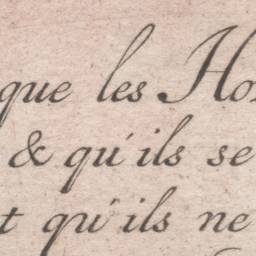 que les Ho
& qu'ils se
t qu'ils ne